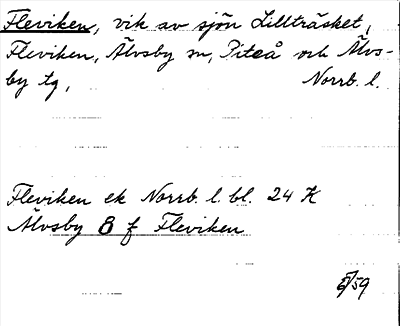 Fleviken, vik av sjön Lillträsket,
Fleviken, Älvsby sn, Piteå och Älvs-
by tg, Norrb. l.
Fleviken ek Norrb. l. bl. 24 K
Älvsby 8 f Fleviken
/59